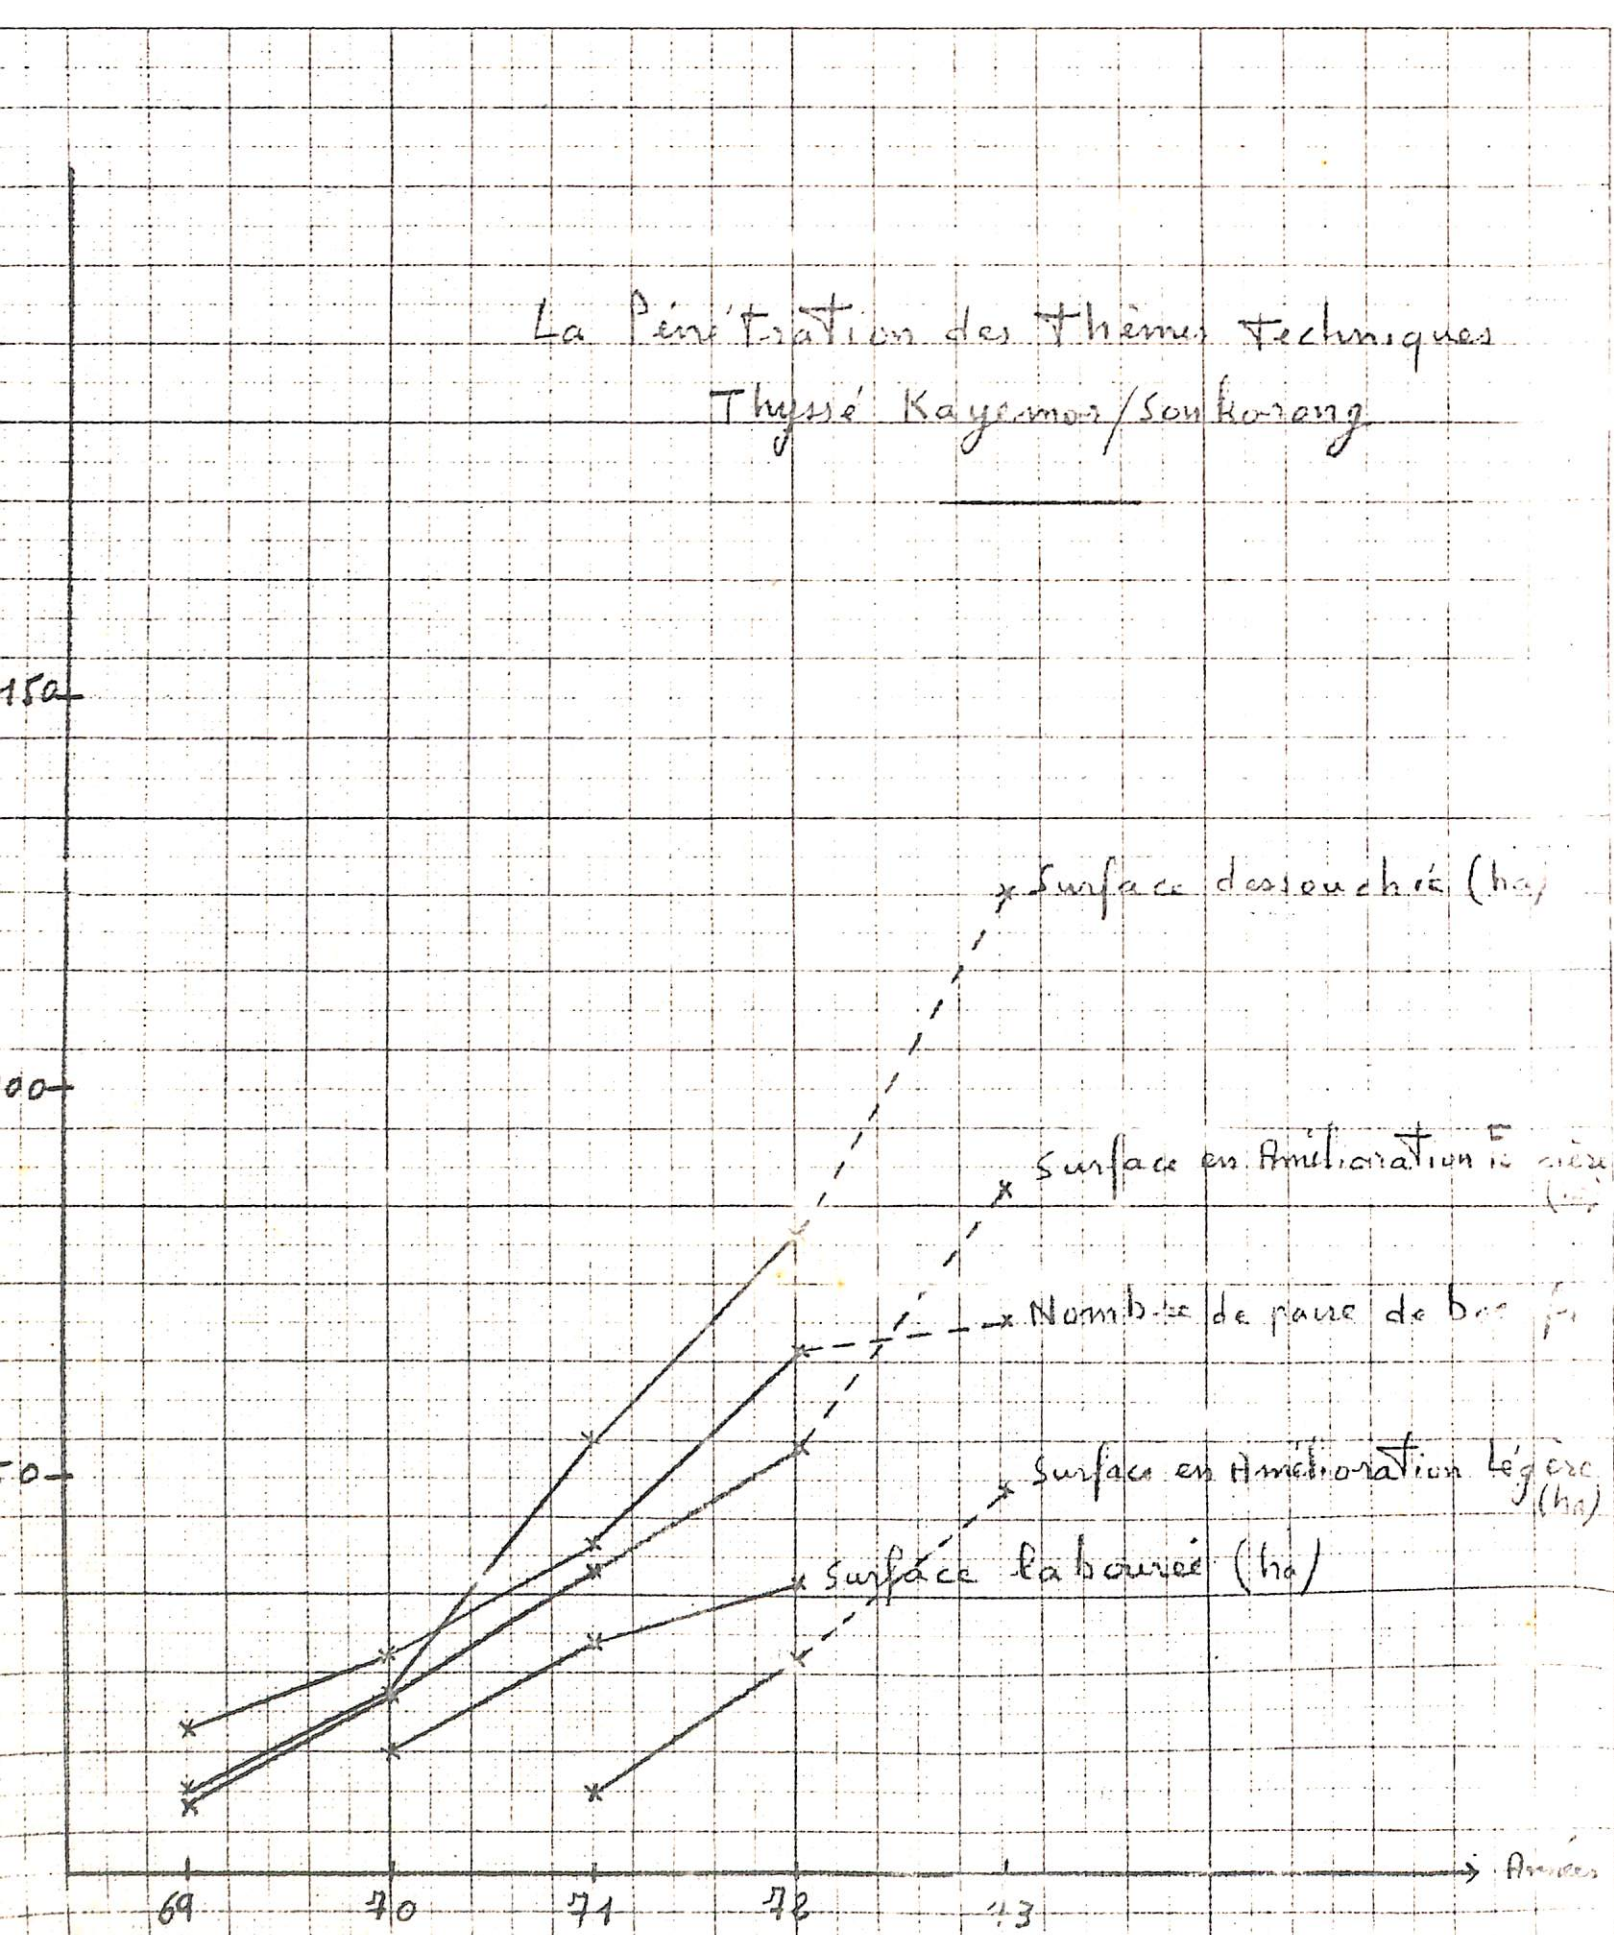 La Pénétration des Thèmes Techniques
Thyssé Kayemor/Sonkorong
150
00
Surface dessouchée (ha)
Surface en Amélioration
Nombre de paire de
50
Surface en Amélioration Légère
(ha)
Surface labourée (ha)
Années
69 70 71 72 73